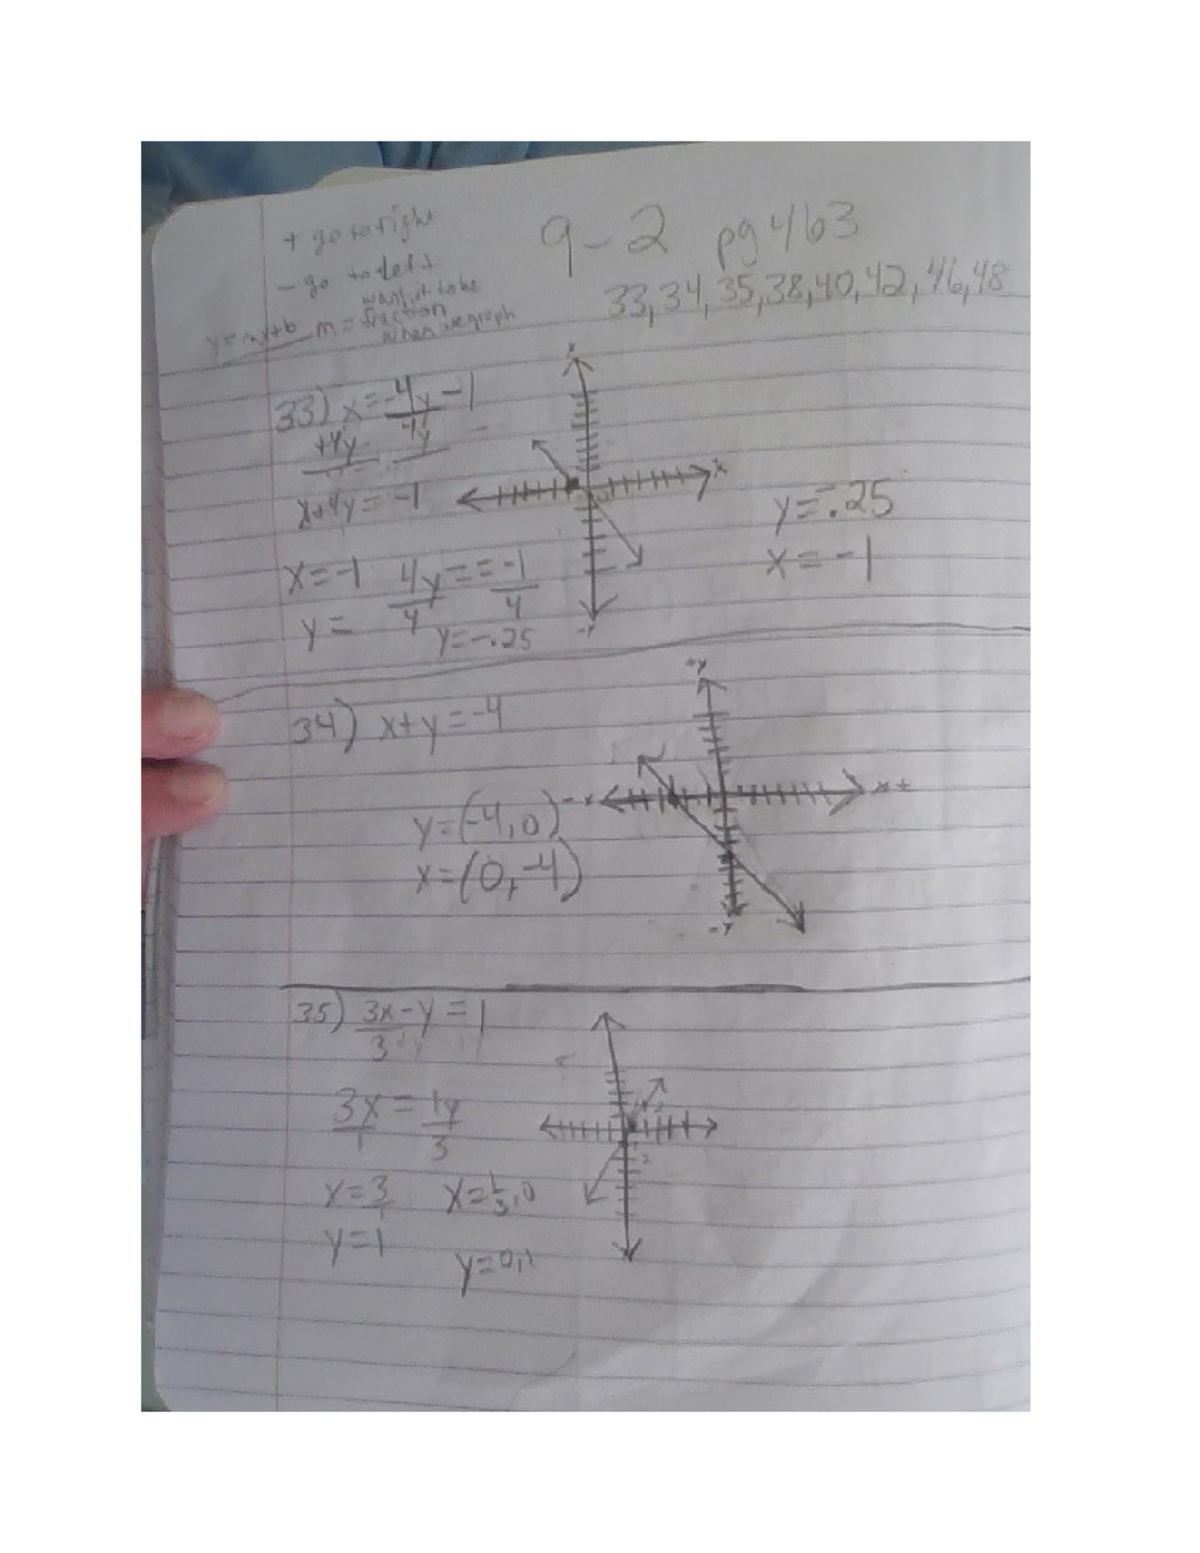 + go to right
- go to left
want it to be
y=mx+b m= fraction
when we graph
9-2 pg 463
33,34,35,38,40,42,46,48
33) x=-4y-1
+4y 4y
x+4y=-1
x=-1 4y==-1
4 4
y=
y=-.25
x
x
-y
y=-.25
x=-1
34) x+y=-4
y=(-4,0)
x=(0,-4)
+y
-x
x+
-y
35) 3x-y=1
3 +y
3x=1y
1 3
x=3/1 x=1/3,0
y=1